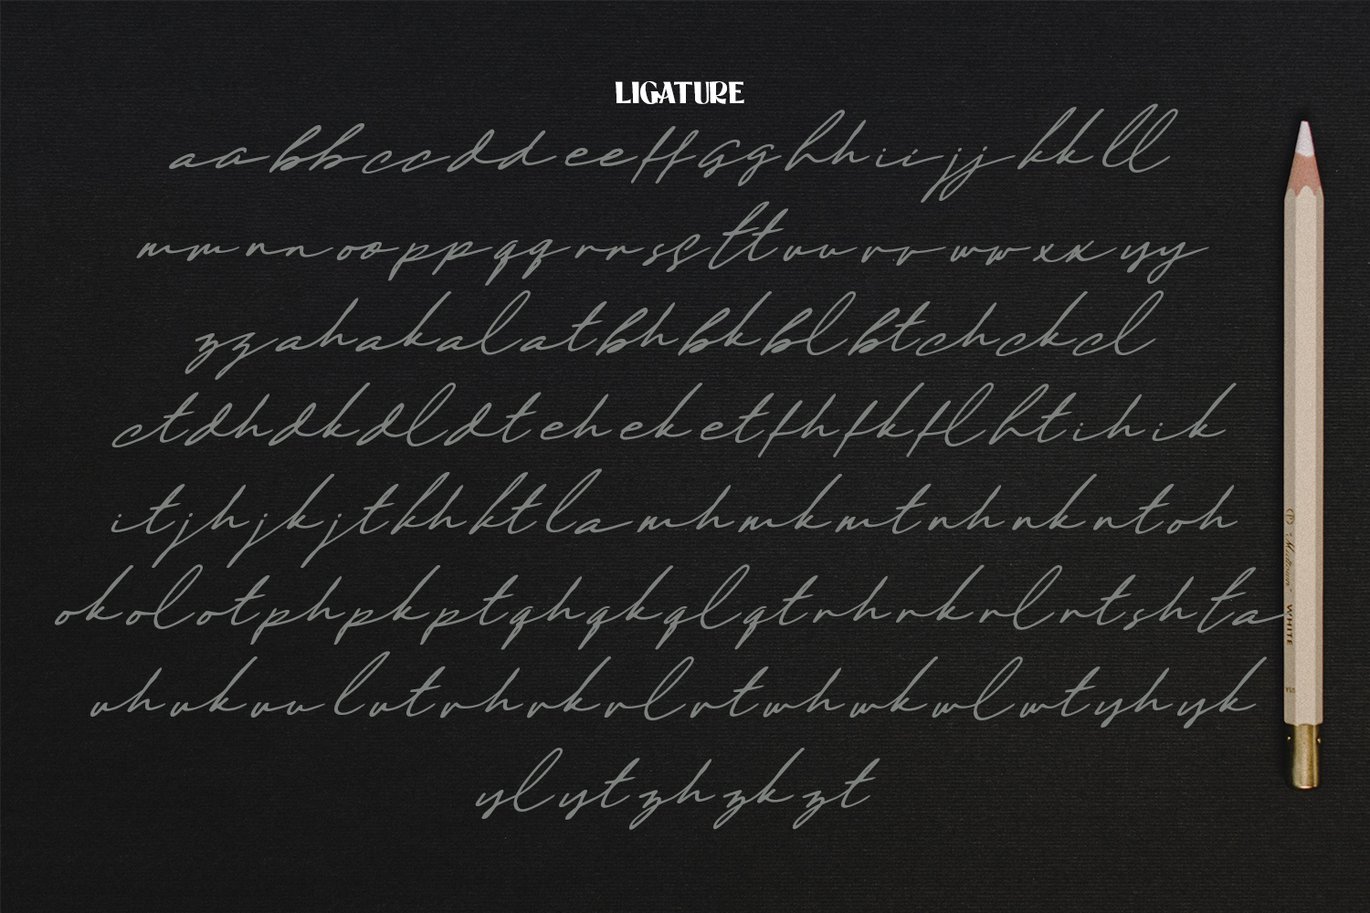 LIGATURE
aabbccddeeffgghhiijjkkll
mmnnooppqqrrssttuuvvwwxxyy
zzahakalatbhbkblbtchckcl
ctdhdkdldteheketfhfkflhtihik
itjhjkjtkhktlamhmkmtnhnkntoh
okolotphpkptqhqkqlqtrhrkrlrtshta
uhukuulutvhvkvlvtwhwkwlwtyhyk
ylytzhzkzt
WHITE